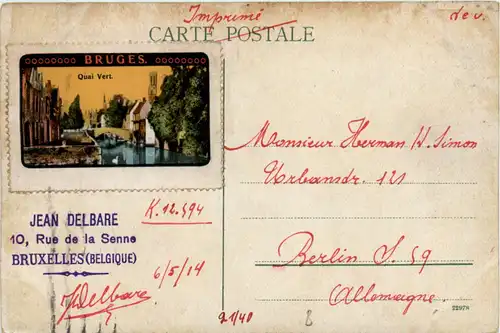 Imprimé
CARTE POSTALE
BRUGES.
Quai Vert.
Monsieur Herman H. Simon
Urbanstr. 121
Berlin S. 59
Allemagne
JEAN DELBARE
10, Rue de la Senne
BRUXELLES (BELGIQUE)
K.12.594
6/5/14
JDelbare
21/40
8